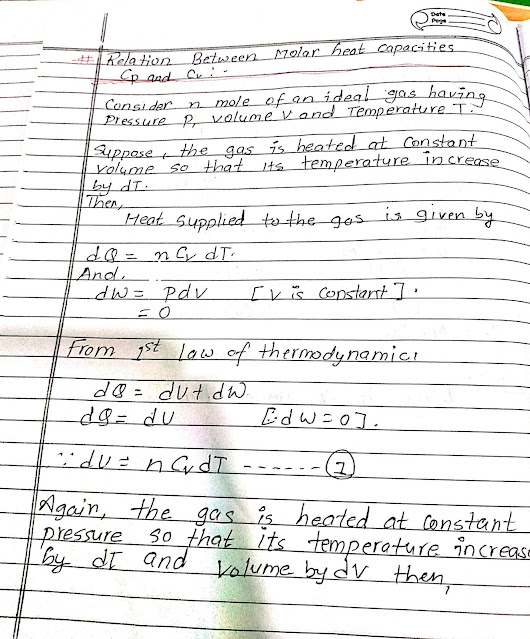 Date
Page
# Relation Between Molar heat capacities
Cp and Cv :-
Consider n mole of an ideal gas having
Pressure P, volume V and Temperature T.
Suppose, the gas is heated at Constant
volume so that its temperature increase
by dT.
Then,
Heat supplied to the gas is given by
dQ = n Cv dT.
And,
dW = PdV [V is Constant].
= 0
From 1st law of thermodynamics
dQ = dU + dW
dQ = dU [∵ dW = 0].
∵ dU = n Cv dT ------ (1)
Again, the gas is heated at Constant
pressure so that its temperature increase
by dT and Volume by dV then,